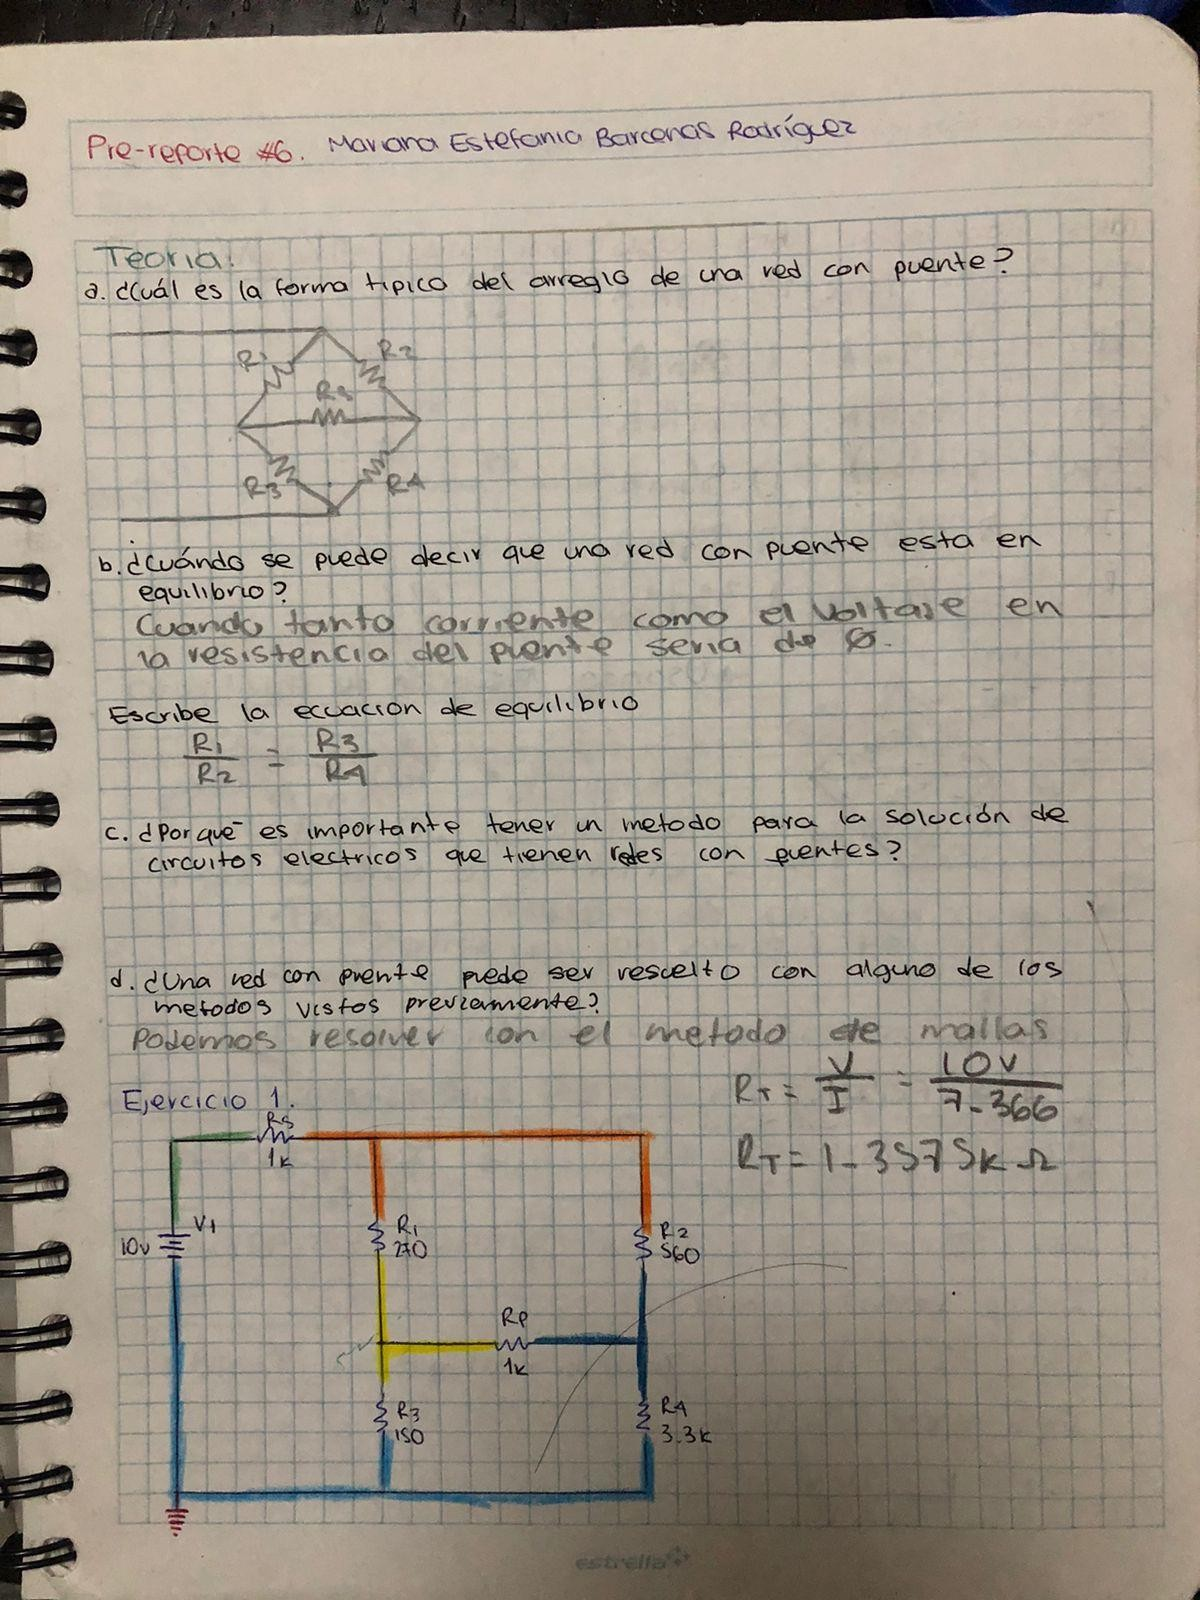 Pre-reporte #6. Mariana Estefania Barcenas Rodríguez
Teoria:
a. ¿Cuál es la forma tipica del arreglo de una red con puente?
R1
R2
R5
R3
R4
b. ¿Cuándo se puede decir que una red con puente esta en
equilibrio?
Cuando tanto corriente como el voltaje en
la resistencia del puente seria de 0.
Escribe la ecuacion de equilibrio
R1 R3
= 
R2 R4
c. ¿Por qué es importante tener un metodo para la solución de
circuitos electricos que tienen redes con puentes?
d. ¿Una red con puente puede ser resuelto con alguno de los
metodos vistos previamente?
Podemos resolver con el metodo de mallas
RT = V/I = 10V/7.366
RT = 1.3575k Ω
Ejercicio 1.
Rs
1k
V1
10v
R1
270
R2
560
Rp
1k
R3
150
R4
3.3k
estrella